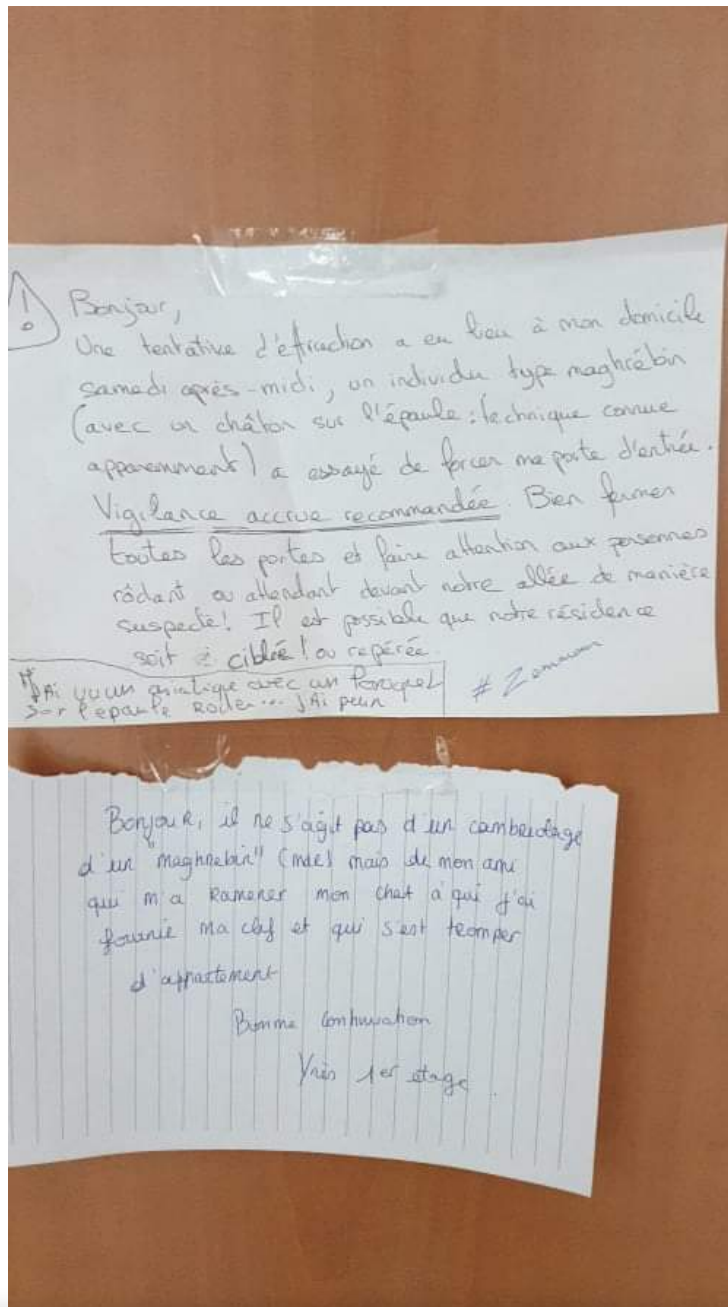 !
Bonjour,
Une tentative d'éffraction a eu lieu à mon domicile
samedi après-midi, un individu type maghrébin
(avec un châton sur l'épaule : technique connue
apparemment) a essayé de forcer ma porte d'entrée.
Vigilance accrue recommandée. Bien fermer
toutes les portes et faire attention aux personnes
rôdant ou attendant devant notre allée de manière
suspecte! Il est possible que notre résidence
soit ciblée! ou repérée.
J'Ai vu un asiatique avec un Perroquet
Sur l'epaule Roder... J'Ai peur
# Zemmour
Bonjour, il ne s'agit pas d'un cambriolage
d'un "maghrebin" (mdr) mais de mon ami
qui m'a Ramener mon chat à qui j'ai
fournie ma clef et qui s'est tromper
d'appartement
Bonne continuation
1er étage